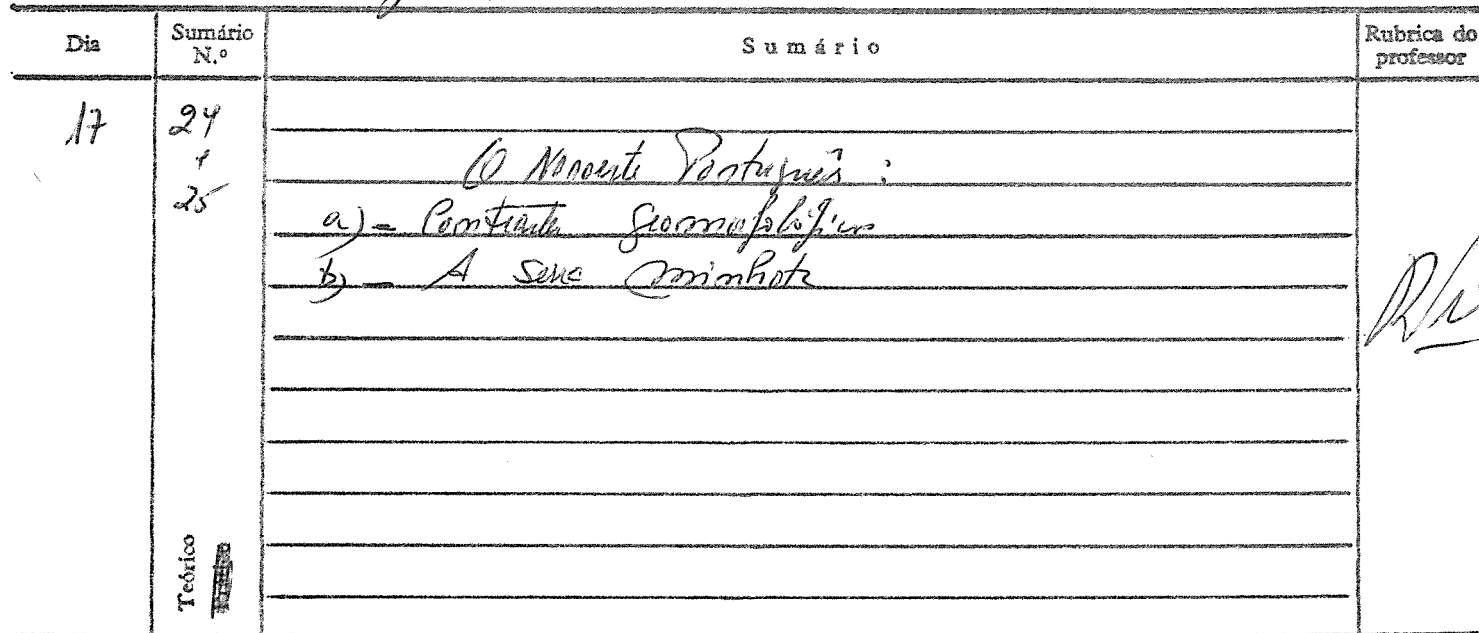 Dia
Sumário N.º
Sumário
Rubrica do professor
17
24
e
25
O Noroeste Português:
a) - Contraste geomorfológico
b) - A serra minhota
Teórico